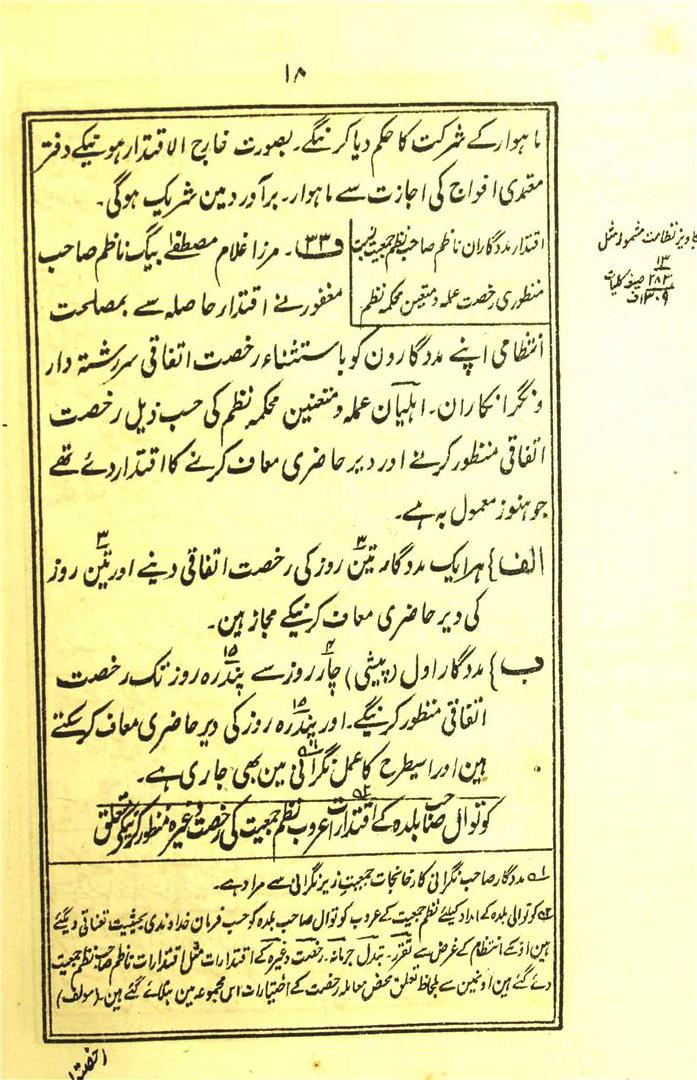 ۱۸
ماہوار کے شرکت کا حکم دیا کرینگے۔ بصورت خارج الاقتدار ہونیکے دفتر
معتمدی افواج کی اجازت سے ماہوار۔ برآورد مین شریک ہوگی۔
اقتدار مددگاران ناظم صاحب نظم جمعیت نسبت
منظوری رخصت عملہ و متعین محکمہ نظم
ف(۳۳)۔ مرزا غلام مصطفےٰ بیگ ناظم صاحب
مغفور نے اقتدار حاصلہ سے بمصلحت
انتظامی اپنے مددگارون کو باستثناء رخصت اتفاقی سررشتہ دار
و نگرانکاران۔ اہلیان عملہ و متعنین محکمہ نظم کی حسب ذیل رخصت
اتفاقی منظور کرنے اور دیر حاضری معاف کرنے کا اقتدار دئے تھے
جو ہنوز معمول بہ ہے۔
الف} ہر ایک مددگار تین ۳ روز کی رخصت اتفاقی دینے اور تین ۳ روز
کی دیر حاضری معاف کرنیکے مجاز ہین۔
ب} مددگار اول (پیشی) چار ۴ روز سے پندرہ ۱۵ روز تک رخصت
اتفاقی منظور کرینگے۔ اور پندرہ ۱۵ روز کی دیر حاضری معاف کرسکتے
ہین اور اسیطرح کا عمل نگرانی ۱؎ مین بھی جاری ہے۔
کوتوال صاحب بلدہ کے اقتدارات ۲؎ عروب نظم جمعیت کی رخصت وغیرہ منظور کرنیکے متعلق
۱؎ مددگار صاحب نگرانی کارخانجات جمعیت زیر نگرانی سے مراد ہے۔
۲؎ کوتوالی بلدہ کے امداد کیلئے نظم جمعیت کے عروب کوتوال صاحب بلدہ کو حسب فرمان خداوندی بحیثیت تعناتی دیگئے
ہین اونکے انتظام کے غرض سے تقرر۔ تبدل جرمانہ۔ رخصت وغیرہ کے اقتدارات مثل اقتدارات ناظم صاحب نظم جمعیت
دئے گئے ہین اونہین سے بلحاظ تعلق محض معاملہ رخصت کے اختیارات اس مجموعہ مین بتلائے گئے ہین۔ (مولف)
نظامت مشمولہ مثل
۱۳
۲۸۳ صیغہ کلیات
۱۳۰۹ف
رخصت